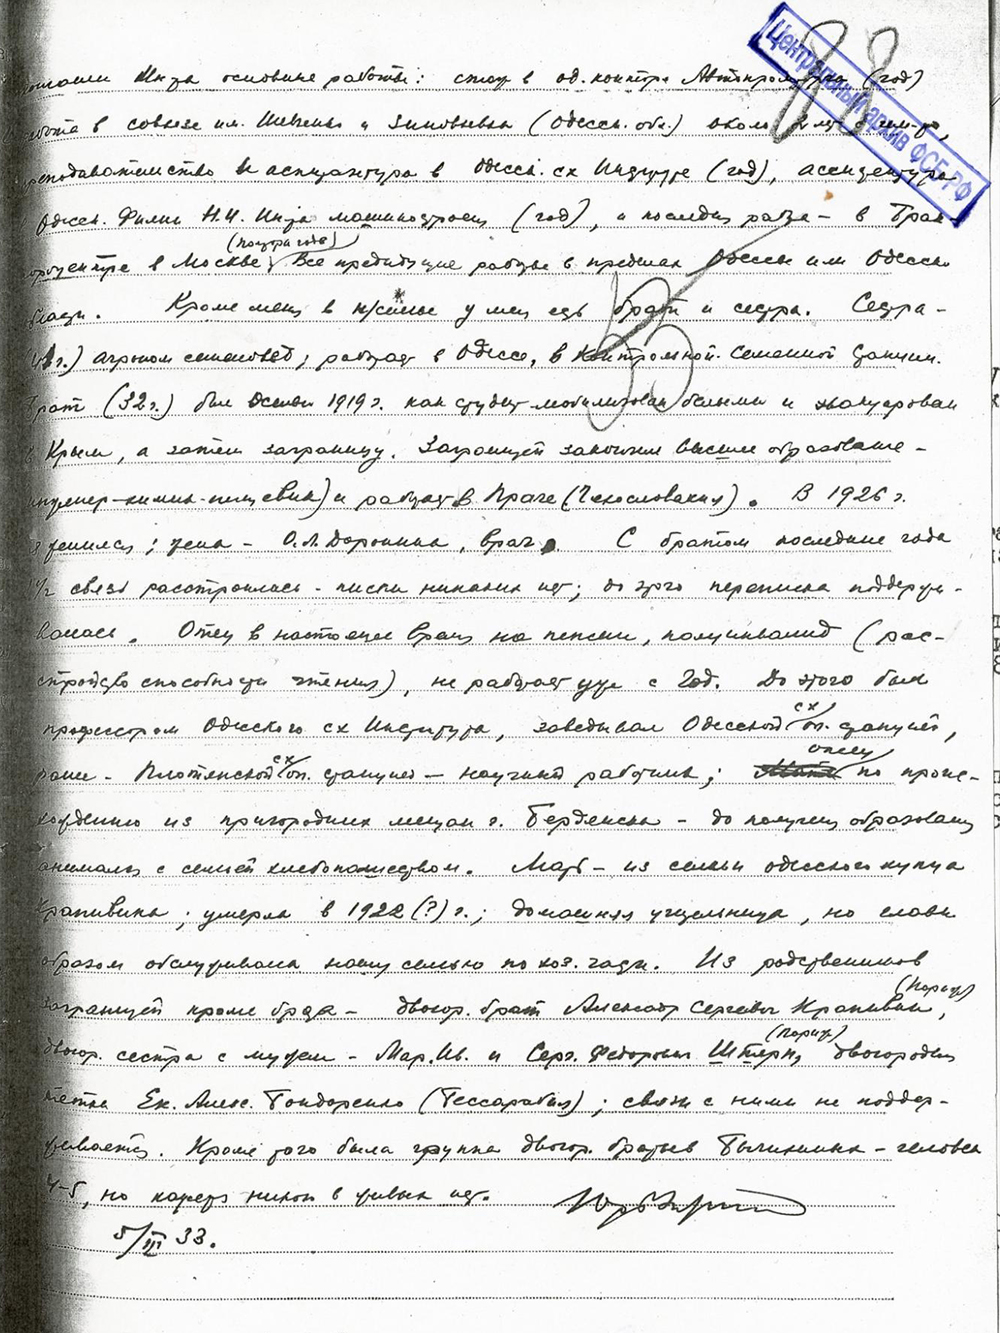 Центральный архив ФСБ РФ
Инза основные работы: в од. конторе (год)
в совхозе им. Шевченко и Зиновьевка (Одесск. обл.) около
аспирантура в Одесск. сх Институте (год), ассистентура
Одесск. Филии Н.И. Инза машиностроен. (год), и последн. работа – в
в Москве (полтора года) Все предыдущие работы в пределах Одессы или Одесск.
Кроме меня в живых у меня есть брат и сестра. Сестра –
агроном семеновед; работает в Одессе, в Контрольной Семенной станции.
Брат (32 г.) был осенью 1919 г. как студент мобилизован белыми и эвакуирован
в Крым, а затем заграницу. Заграницей закончил высшее образование –
инженер-химик-пищевик) и работает в Праге (Чехословакия). В 1926 г.
женился; жена – О.Л. Доронина, врач. С братом последние года
1/2 связь расстроилась – писем никаких нет; до этого переписка поддержи-
валась. Отец в настоящее время на пенсии, полуинвалид (рас-
стройство способности чтения), не работает уже с год. До этого был
профессором Одесского сх Института, заведывал Одесской сх оп. станцией,
ранее – Плотянской сх оп. станцией – научный работник; отец по проис-
хождению из пригородних мещан г. Бердянска – до получен. образования
занимались с семьей хлебопашеством. Мать – из семьи одесского купца
Крапивина; умерла в 1922 (?) г.; домашняя учительница, но главн.
образом обслуживала нашу семью по хоз. части. Из родственников
заграницей кроме брата – двоюр. брат Александр Сергеевич Крапивин (Париж),
двоюр. сестра с мужем – Мар. Ив. и Серг. Федорович Штерн (Париж), двоюродная
тетка Ек. Алекс. Бондаренко (Бессарабия); связь с ними не поддер-
живается. Кроме того была группа двоюр. братьев – человека
4-5, но наверн. никого в живых нет.
5/III 33.